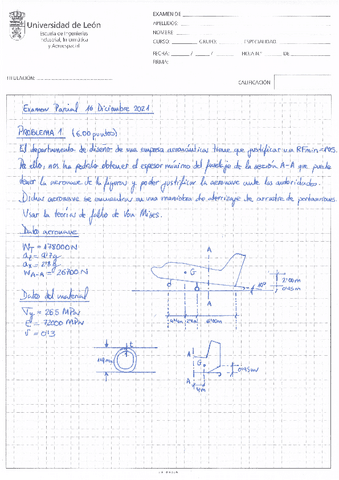 Universidad de León
Escuela de Ingenierías
Industrial, Informática
y Aeroespacial
EXAMEN DE
APELLIDOS
NOMBRE
CURSO GRUPO ESPECIALIDAD
FECHA HOJA N.º DE
FIRMA:
TITULACIÓN
CALIFICACIÓN
Examen Parcial 16 Diciembre 2021
PROBLEMA 1. (6,00 puntos)
El departamento de diseño de una empresa aeronáutica tiene que justificar un RFmin
Por ello, nos ha pedido obtener el espesor mínimo del fuselaje de la sección A-A que puede
tener la aeronave de la figura y poder justificar la aeronave ante las autoridades.
Dicha aeronave se encuentra en una maniobra de aterrizaje de
Usar la teoría de fallo de Von Mises.
Datos aeronave
W_T = 178000 N
W_A-A = 26700 N
Datos del material
σ_y = 265 MPa
E = 72000 MPa
A
G
10º
A
A
G
A